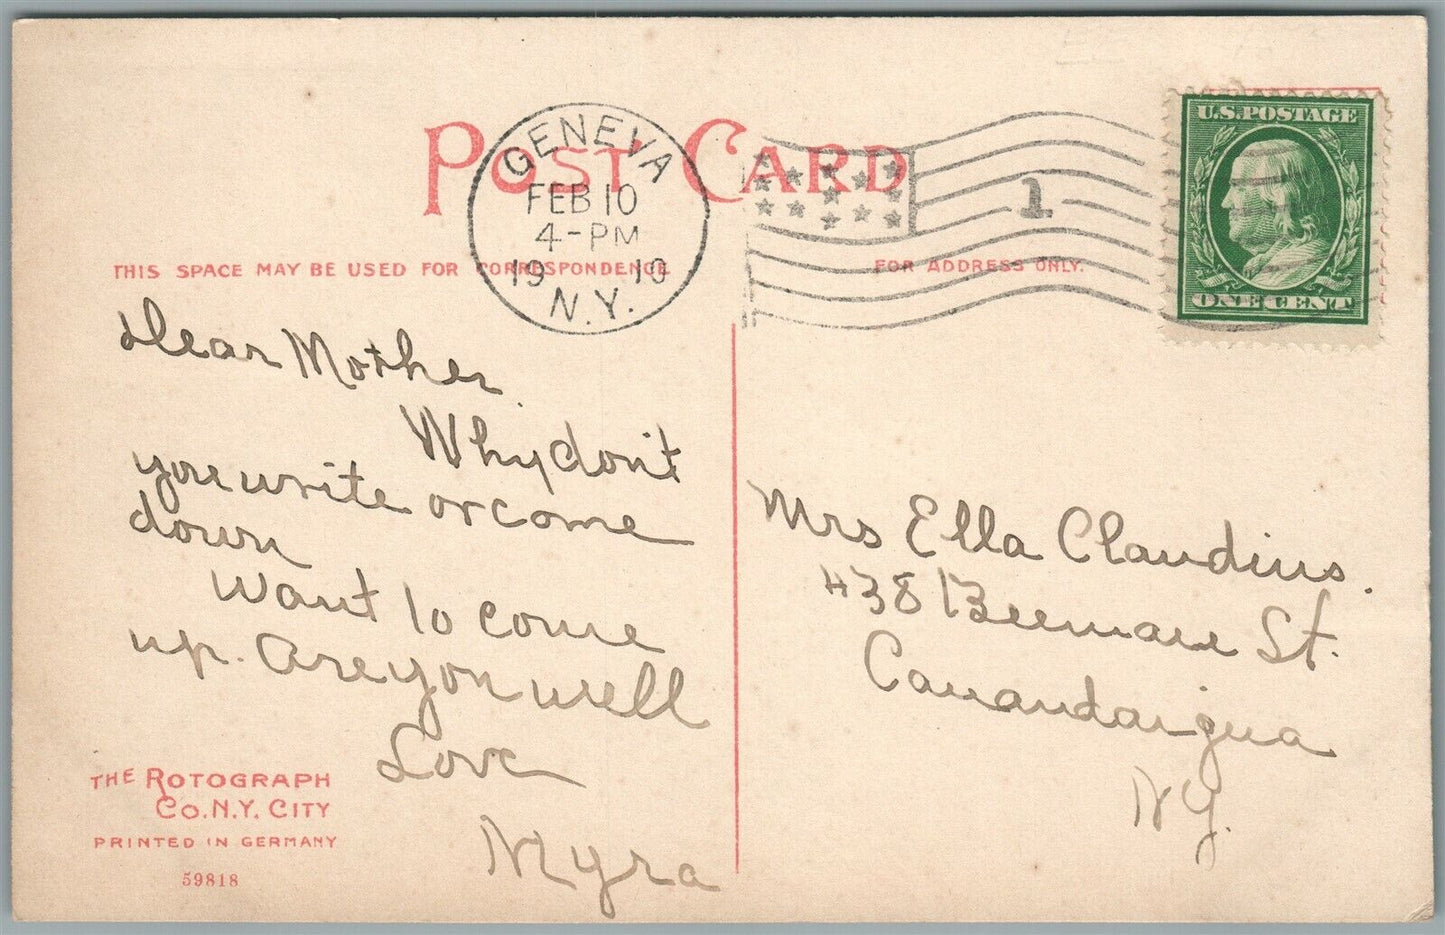 POST CARD
GENEVA
FEB 10
4-PM
1910
N.Y.
1
U.S. POSTAGE
ONE CENT
THIS SPACE MAY BE USED FOR CORRESPONDENCE
FOR ADDRESS ONLY.
Dear Mother
Why don't
you write or come
down
Want to come
up. Are you well
Love
Myra
Mrs Ella Claudius.
438 Beemace St.
Canandaigua
NY.
THE ROTOGRAPH
CO. N.Y. CITY
PRINTED IN GERMANY
59818